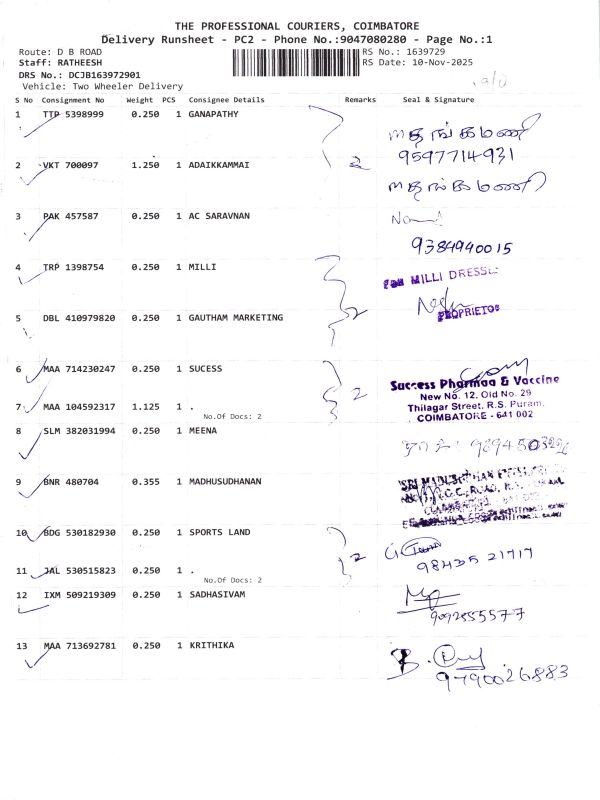 THE PROFESSIONAL COURIERS, COIMBATORE
Delivery Runsheet - PC2 - Phone No.:9047080280 - Page No.:1
Route: D B ROAD
RS No.: 1639729
Staff: RATHEESH
RS Date: 10-Nov-2025
DRS No.: DCJB163972901
Vehicle: Two Wheeler Delivery
S No Consignment No Weight PCS Consignee Details Remarks Seal & Signature
1 TTP 5398999 0.250 1 GANAPATHY
9597714931
2 VKT 700097 1.250 1 ADAIKKAMMAI 2
3 PAK 457587 0.250 1 AC SARAVNAN
9384940015
4 TRP 1398754 0.250 1 MILLI
FOR MILLI DRESSE
2
5 DBL 410979820 0.250 1 GAUTHAM MARKETING
PROPRIETOR
6 MAA 714230247 0.250 1 SUCESS
Success Pharmaa & Vaccine
New No. 12, Old No. 29
2
Thilagar Street, R.S. Puram,
COIMBATORE - 641 002
7 MAA 104592317 1.125 1 .
No.Of Docs: 2
8 SLM 382031994 0.250 1 MEENA
9 BNR 480704 0.355 1 MADHUSUDHANAN
10 BDG 530182930 0.250 1 SPORTS LAND
2
98435 21717
11 JAL 530515823 0.250 1 .
No.Of Docs: 2
12 IXM 509219309 0.250 1 SADHASIVAM
9092855577
13 MAA 713692781 0.250 1 KRITHIKA
9790026883